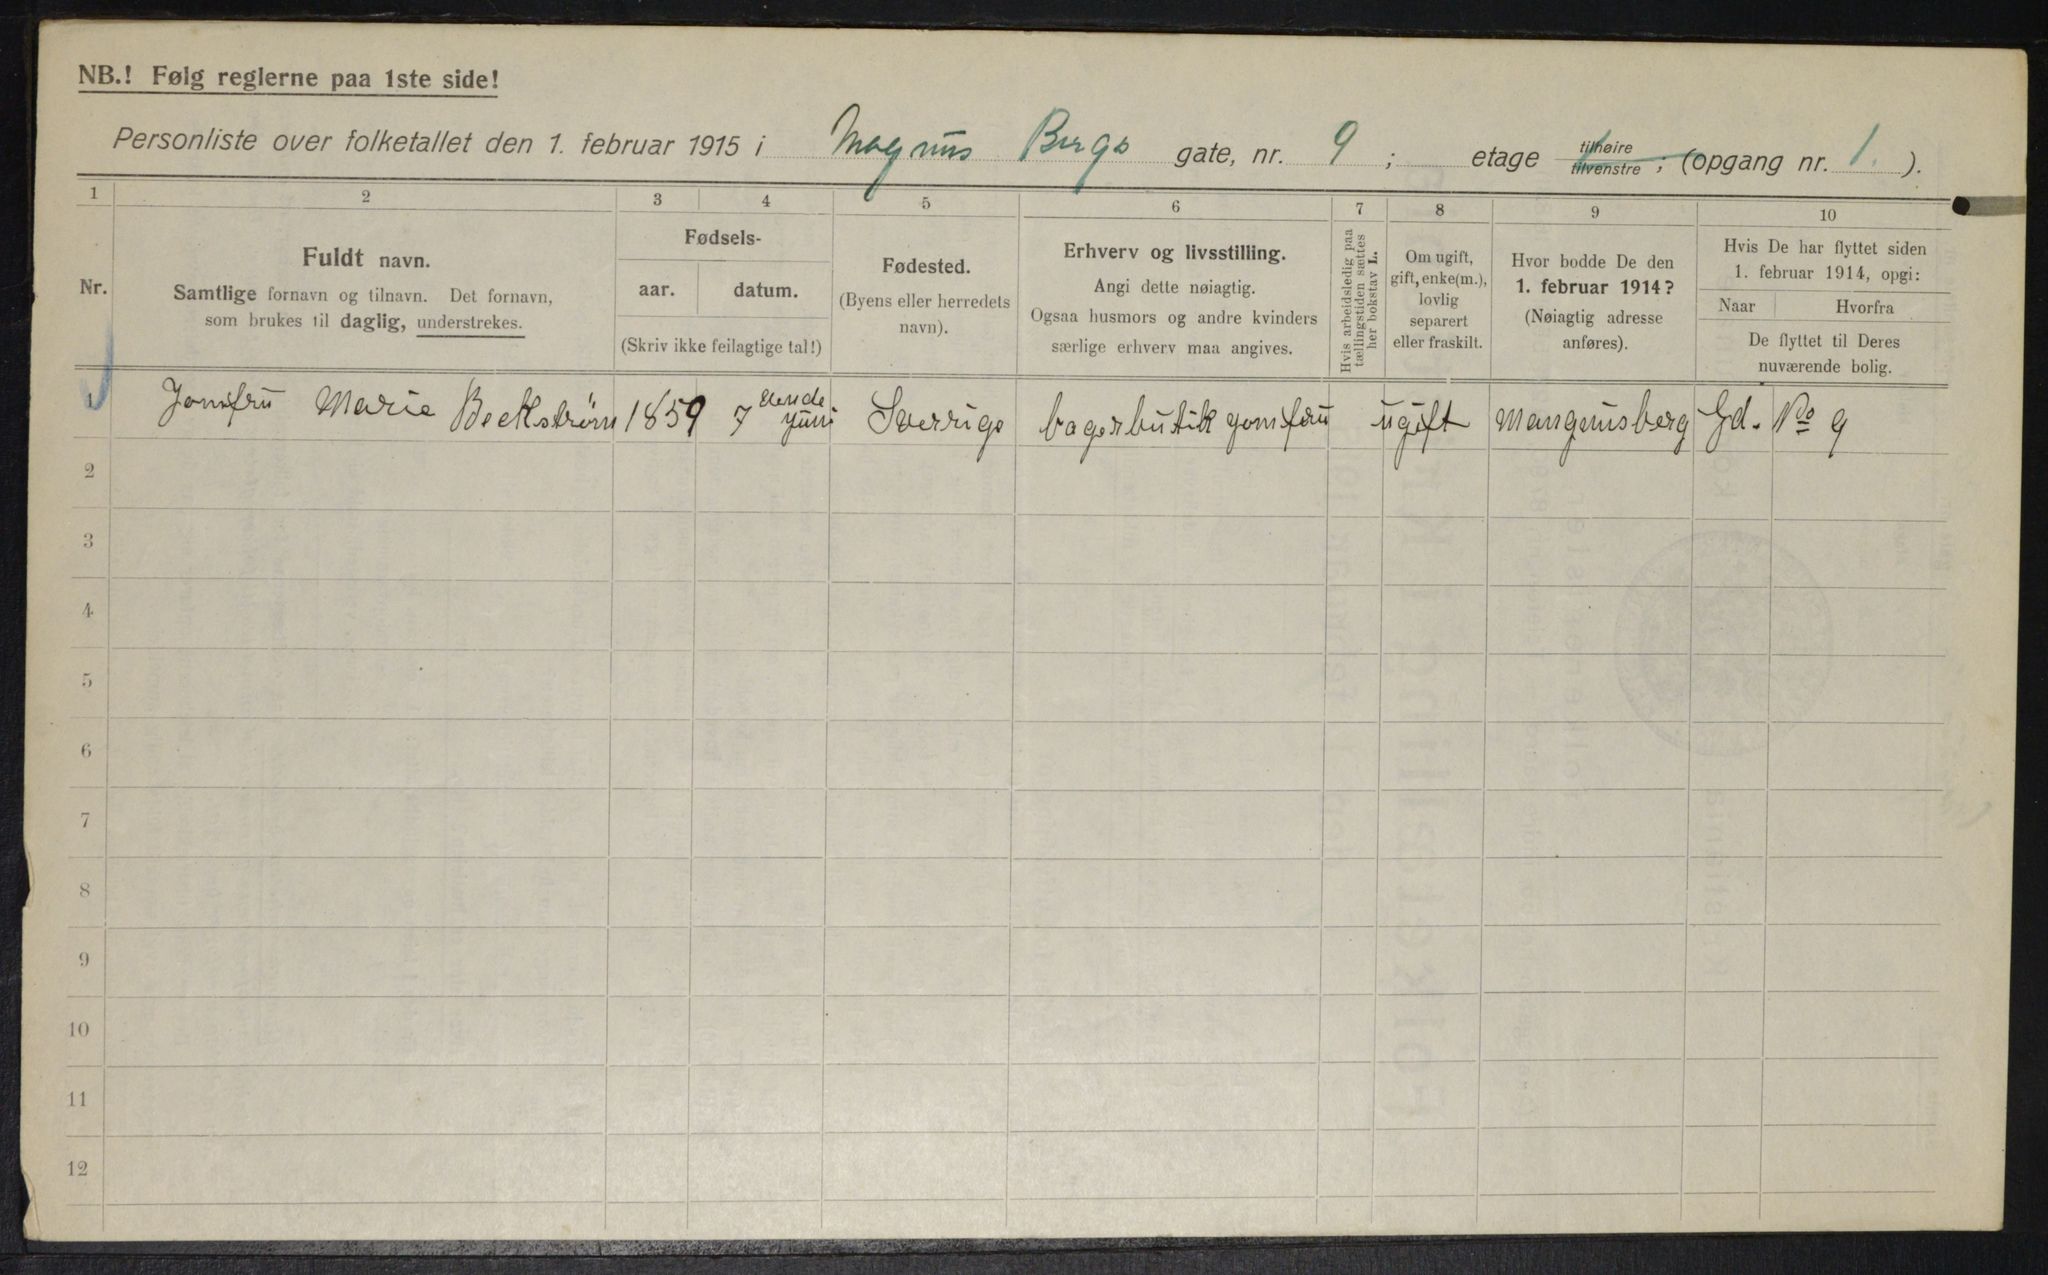 NB.! Følg reglerne paa 1ste side!
Personliste over folketallet den 1. februar 1915 i Magnus Bergs gate, nr. 9; etage tilhøire tilvenstre; (opgang nr. 1.).
1 2 3 4 5 6 7 8 9 10
Nr.
Fuldt navn.
Samtlige fornavn og tilnavn. Det fornavn,
som brukes til daglig, understrekes.
Fødsels-
aar. datum.
(Skriv ikke feilagtige tal!)
Fødested.
(Byens eller herredets
navn).
Erhverv og livsstilling.
Angi dette nøiagtig.
Ogsaa husmors og andre kvinders
særlige erhverv maa angives.
Hvis arbeidsledig paa
tællingstiden sættes
her bokstav L.
Om ugift,
gift, enke(m.),
lovlig
separert
eller fraskilt.
Hvor bodde De den
1. februar 1914?
(Nøiagtig adresse
anføres).
Hvis De har flyttet siden
1. februar 1914, opgi:
Naar Hvorfra
De flyttet til Deres
nuværende bolig.
1 Jomfru Marie Beckström 1859 7 ende juni Sverrige bagerbutik jomfru ugift Mangnusberg Gd. No 9
2
3
4
5
6
7
8
9
10
11
12